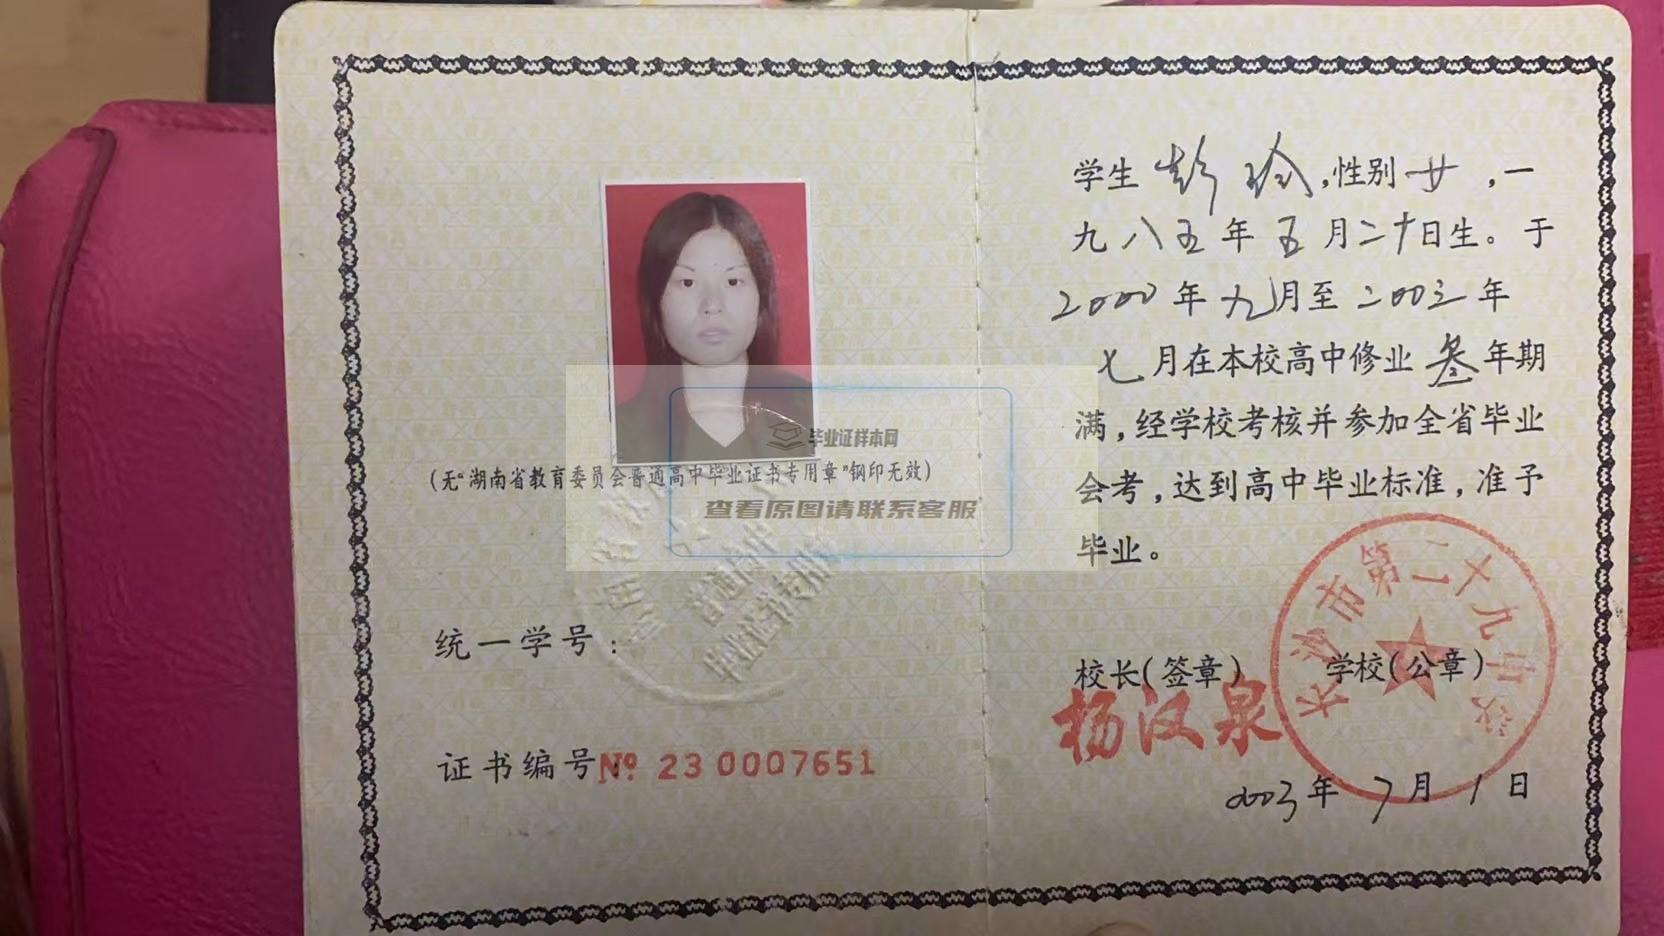 (无“湖南省教育委员会普通高中毕业证书专用章”钢印无效)
毕业证样本网
查看原图请联系客服
普通高中
毕业证书专用章
统一学号：
证书编号：№ 23 0007651
学生 彭玲,性别 女 ,一
九八五年 五 月二十日生。于
2000 年 九月至 二00三 年
七 月在本校高中修业 叁 年期
满,经学校考核并参加全省毕业
会考,达到高中毕业标准,准予
毕业。
校长(签章) 学校(公章)
杨汉泉
长沙市第二十九中学
2003 年 7 月 1 日